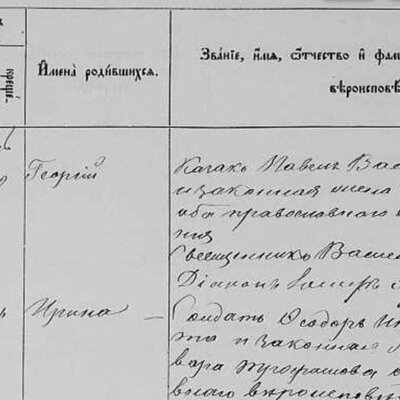 креще.
Имена родившихся.
Званіе, имя, отчество и фам
вѣроисповѣ
Георгій
Казакъ Павелъ Вас
и законная жена
оба православнаго
нія
Священникъ Васил
Діаконъ
Ирина —
Солдатъ Ѳеодоръ
та и законная
вара
внаго вѣроисповѣ